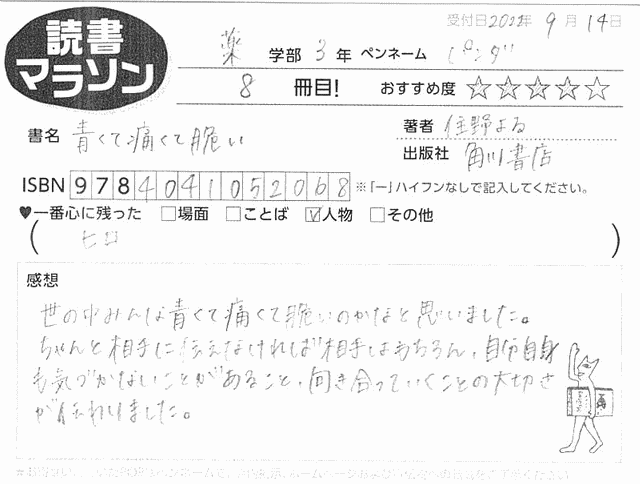 読書
マラソン
受付日2022年 9月 14日
薬 学部 3年 ペンネーム パンダ
8 冊目! おすすめ度 ☆☆☆☆☆
書名 青くて痛くて脆い
著者 住野よる
出版社 角川書店
ISBN 9784041052068 ※「ー」ハイフンなしで記入してください。
♥一番心に残った □場面 □ことば ☑人物 □その他
(ヒロ)
感想
世の中みんな青くて痛くて脆いのかなと思いました。
ちゃんと相手に伝えなければ相手はもちろん、自分自身
も気づかないことがあること、向き合っていくことの大切さ
が伝わりました。